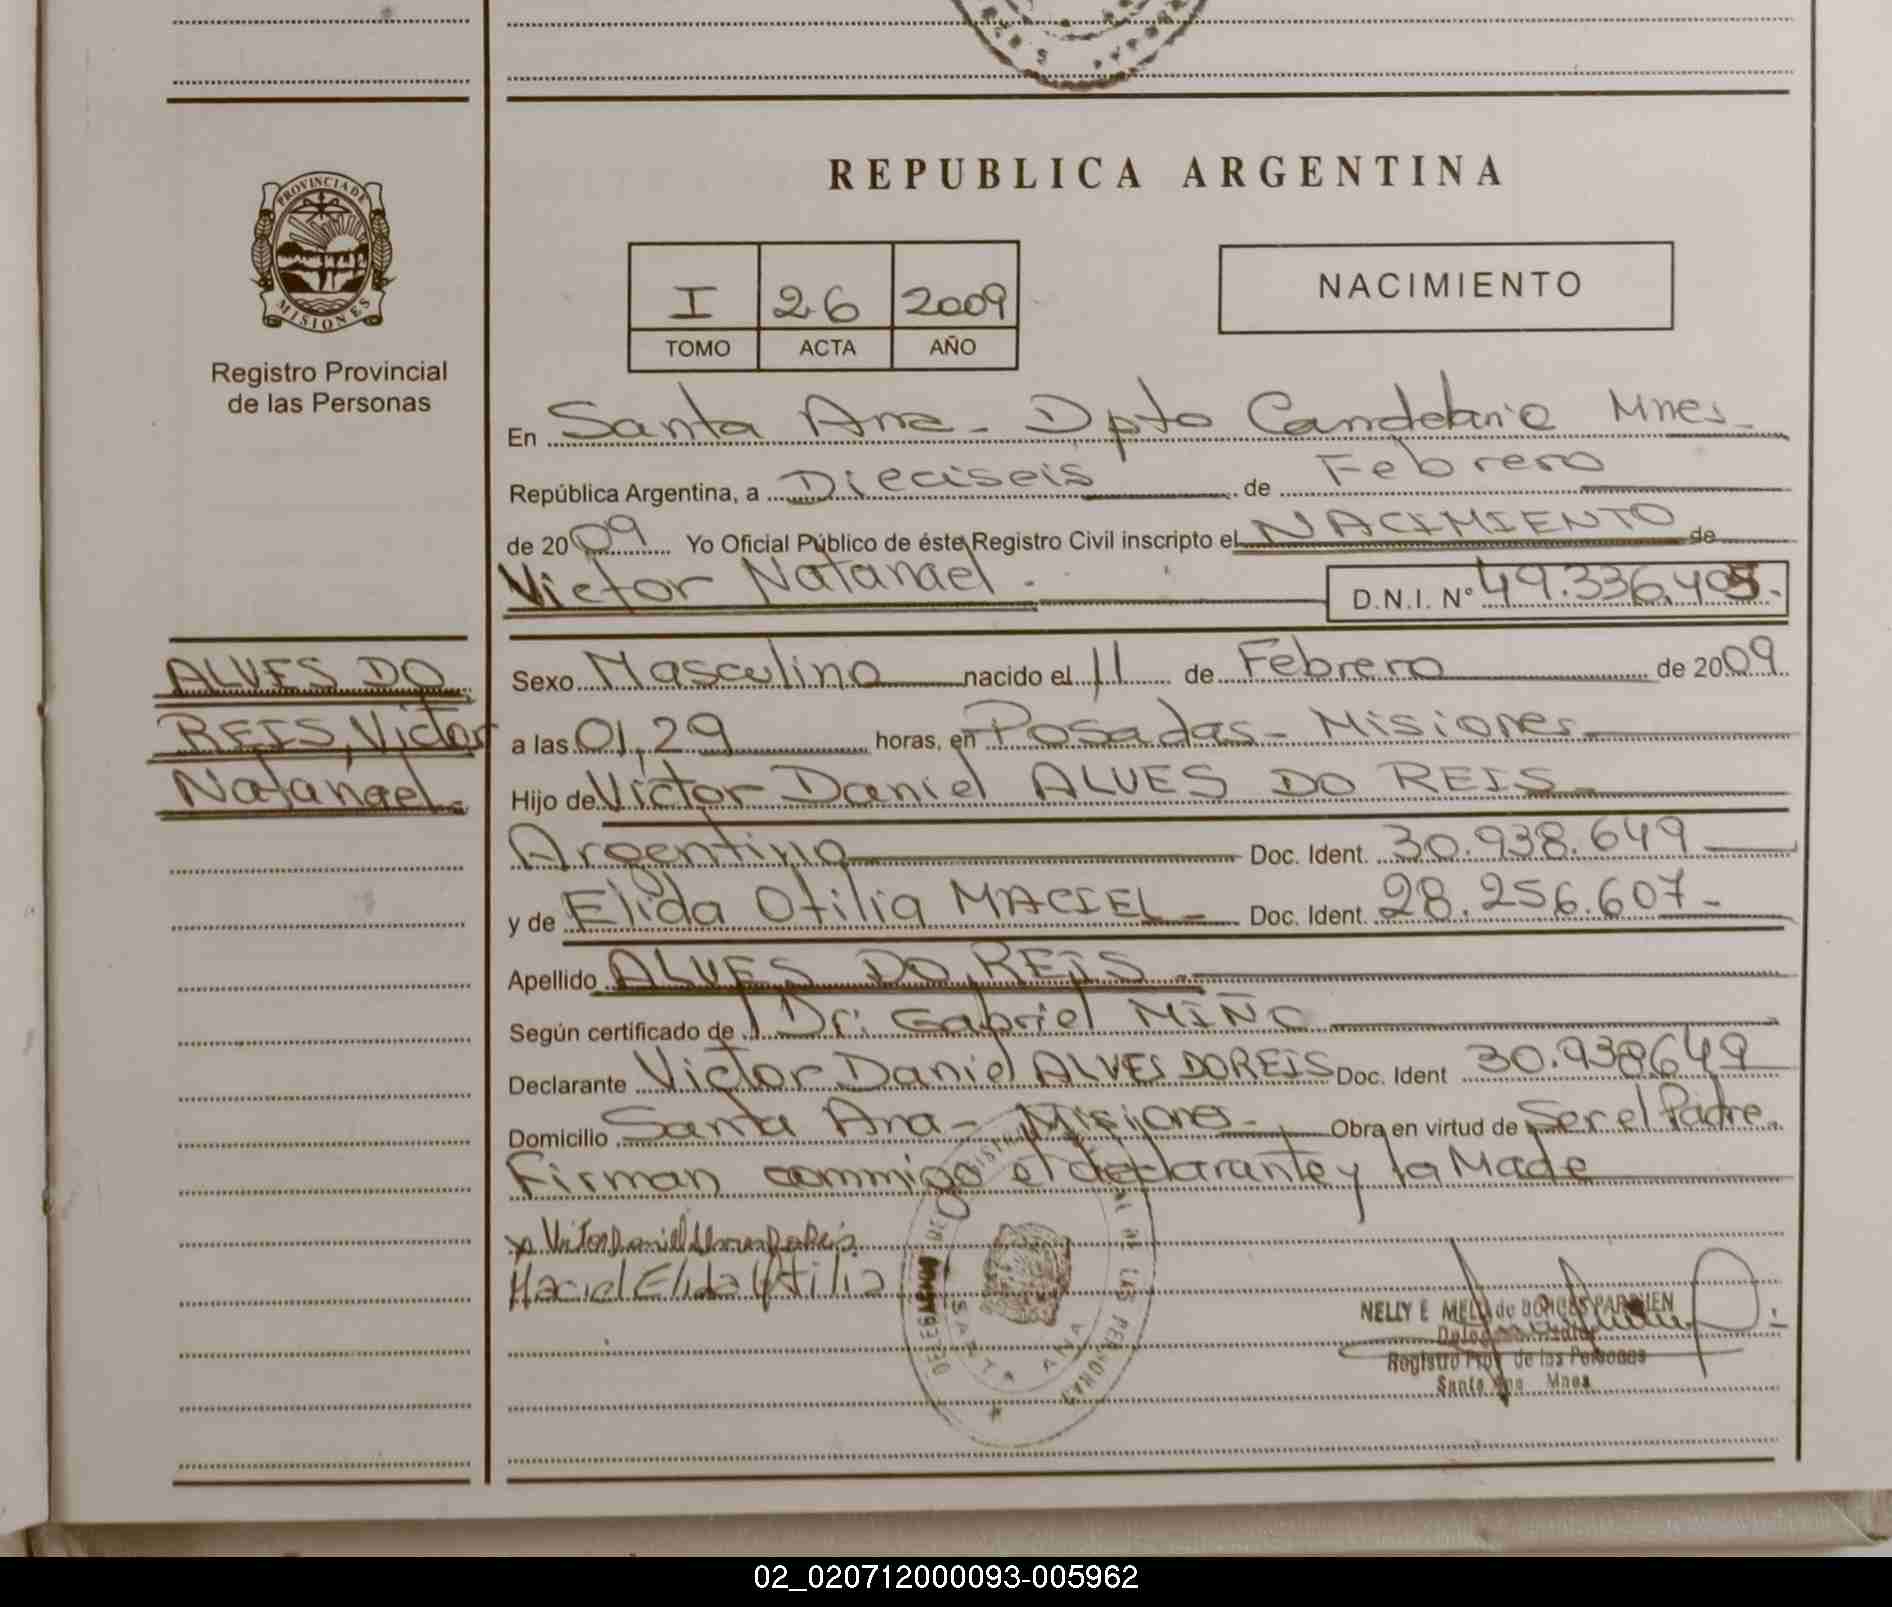 REPUBLICA ARGENTINA
PROVINCIA DE
MISIONES
Registro Provincial
de las Personas
I 26 2009
TOMO ACTA AÑO
NACIMIENTO
En Santa Ana - Dpto Candelaria Mnes -
República Argentina, a Dieciseis de Febrero
de 2009 Yo Oficial Público de éste Registro Civil inscripto el NACIMIENTO de
Victor Natanael - D.N.I. N° 49.336.405.-
ALVES DO
REIS, Victor
Natanael.
Sexo Masculino nacido el 11 de Febrero de 2009
a las 01,29 horas, en Posadas - Misiones
Hijo de Victor Daniel ALVES DO REIS -
Argentino Doc. Ident. 30.938.649
y de Elida Otilia MACIEL - Doc. Ident. 28.256.607 -
Apellido ALVES DO REIS -
Según certificado de Dr: Gabriel MIÑO
Declarante Victor Daniel ALVES DO REIS Doc. Ident 30.938649
Domicilio Santa Ana - Misiones - Obra en virtud de Ser el Padre.
Firman commigo el declarante y la Made
Maciel Elida Otilia
DE LAS PERSONAS
SANTA ANA
NELLY E MELO de
Registro Prov de las Personas
Santa Ana Mnes
02_020712000093-005962